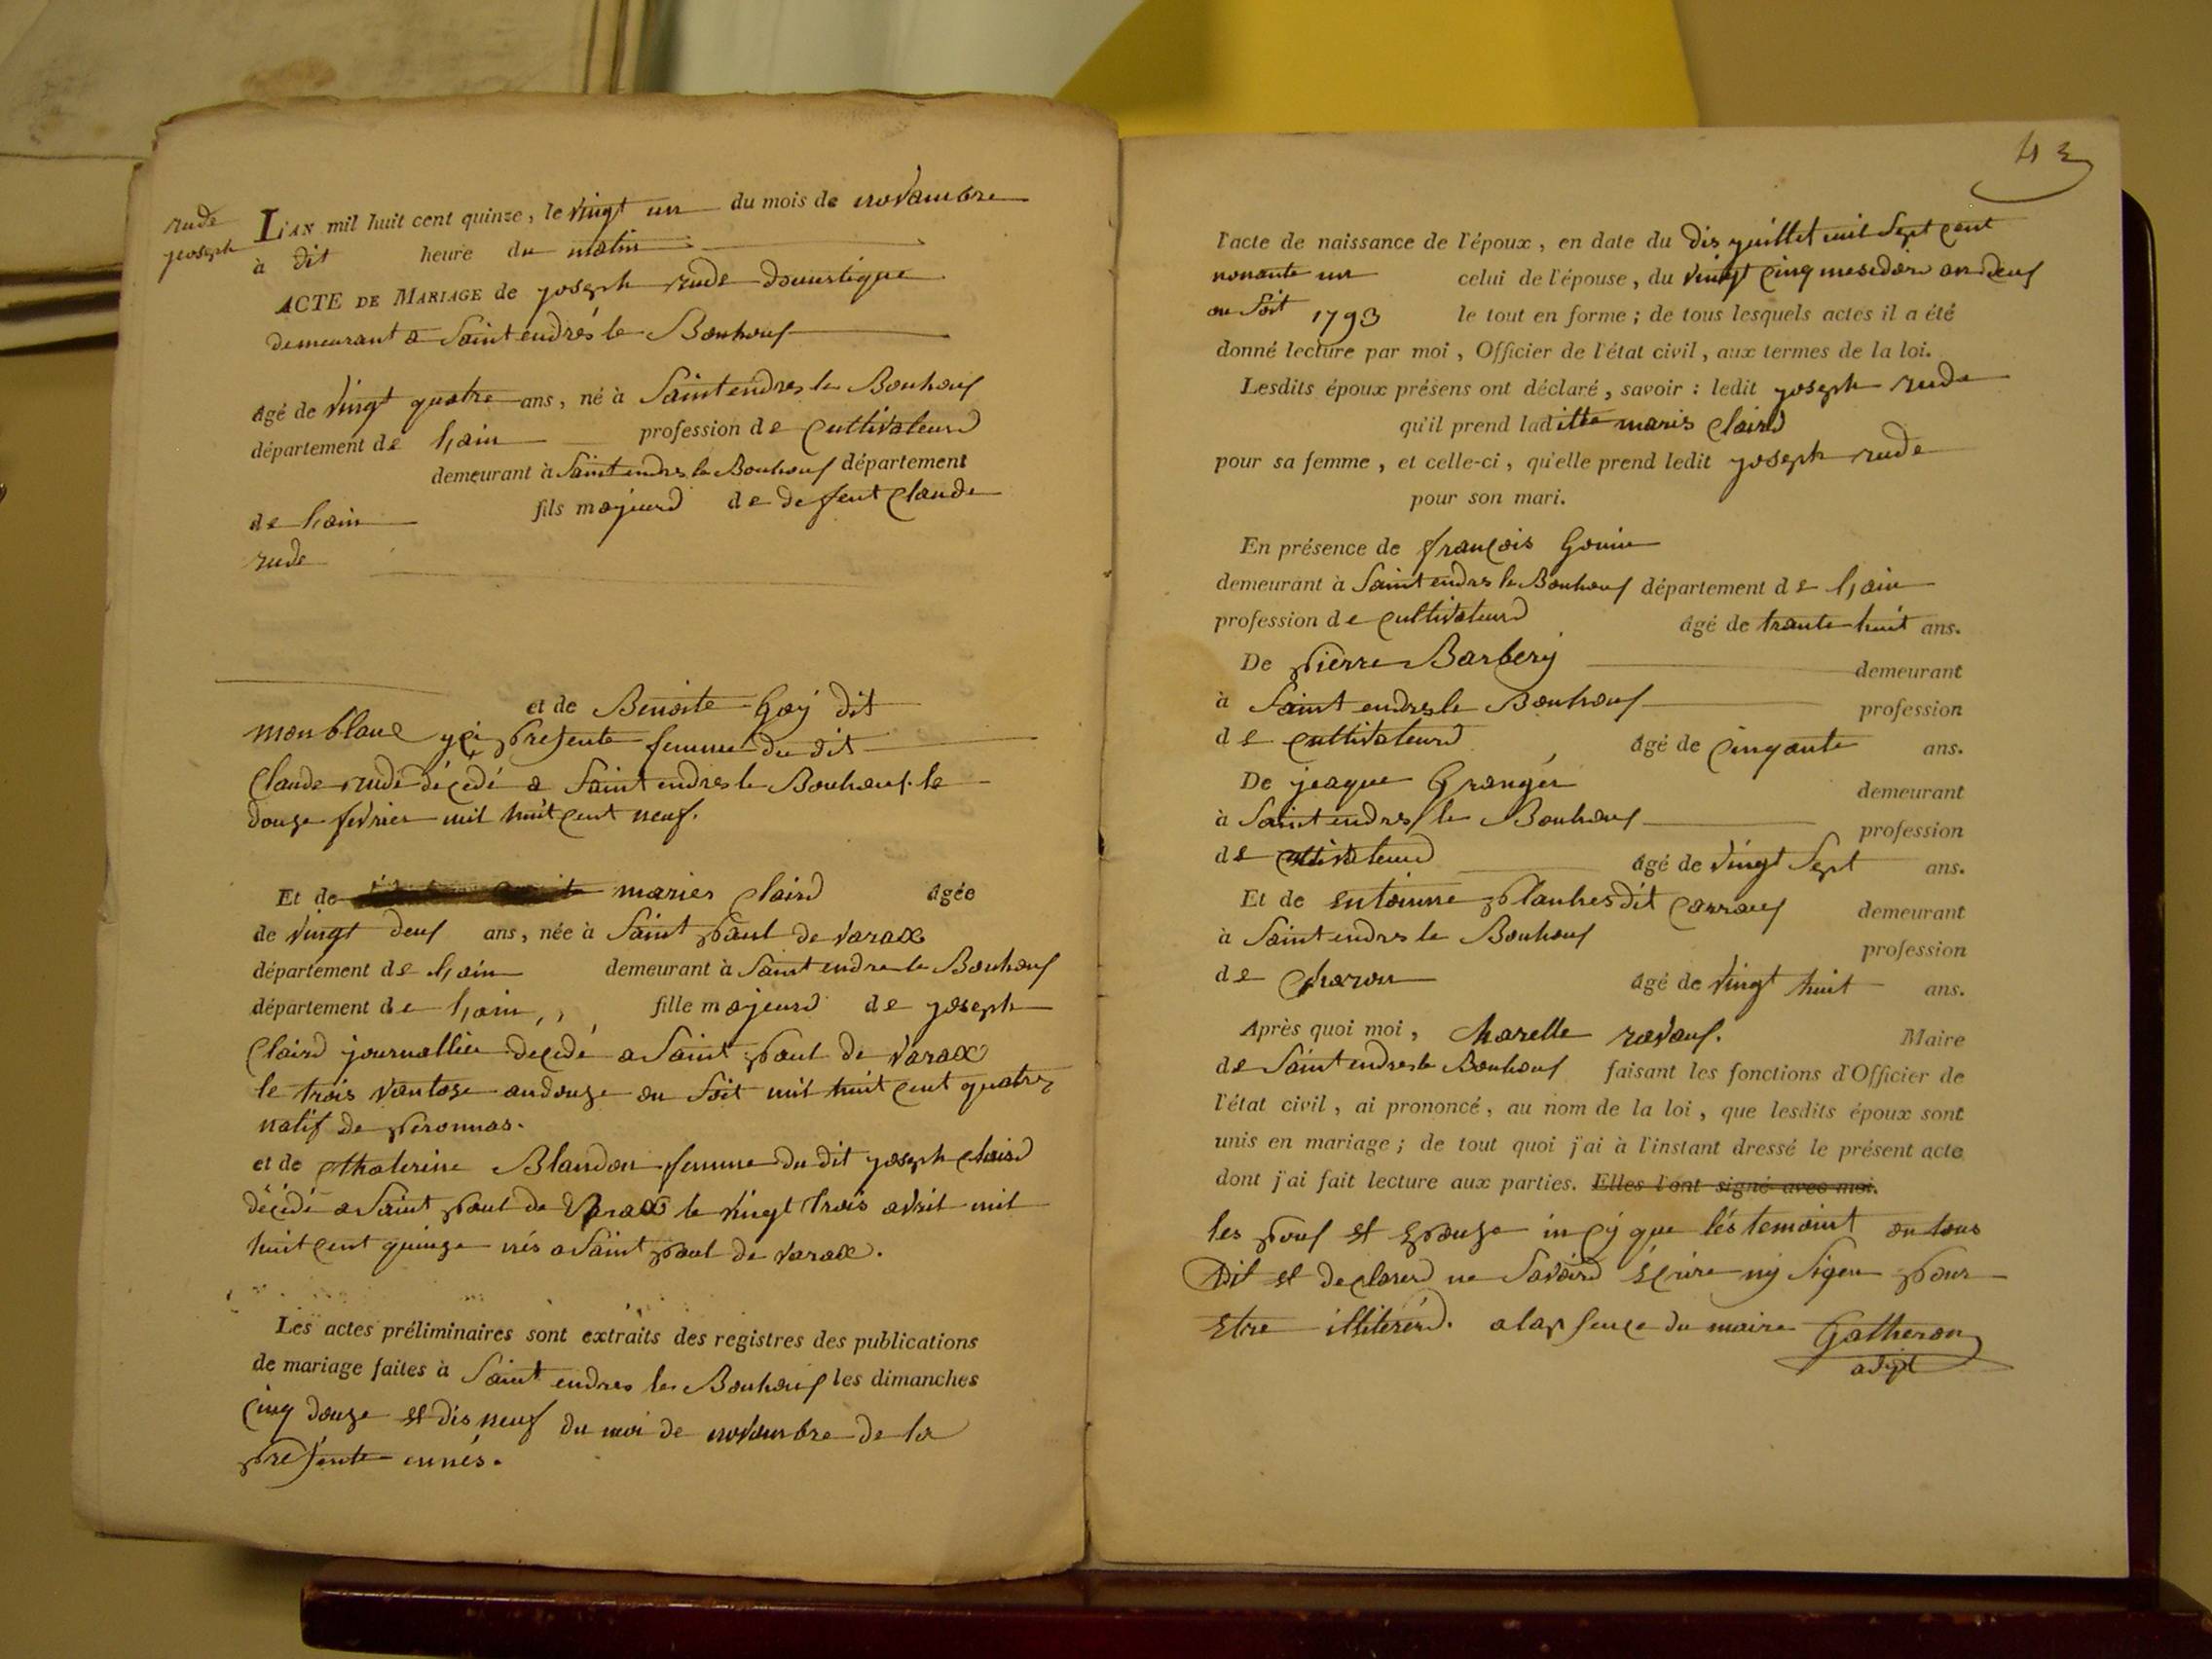 rude
joseph
L'AN mil huit cent quinze, le vingt un du mois de novambre
à dit heure du matin
ACTE DE MARIAGE de joseph rude doumstique
demeurant a Saint endrés le Bouhouf
âgé de vingt quatre ans, né à Saint endres le Bouhouf
département de lain profession de cultivateurd
demeurant à Saint endres le Bouhouf département
de lain fils majeurd de defeut claude
rude
et de Benoite Goÿ dit
monblanc yçi presente femme du dit
claude rude décedé a Saint endres le Bouhouf le
douze fevrier mil huit cent neuf.
Et de maries claird âgée
de vingt deuf ans, née à Saint paul de varax
département de lain demeurant à Saint endre le Bouhouf
département de lain, fille majeurd de joseph
claird journallier decedé a Saint paul de varax
le trois vantoze an douze ou Soit mil huit cent quatre
natif de peronnas.
et de chaterine Blandon femme du dit joseph claird
décidé a Saint paul de varax le vingt trois avril mil
huit cent quinze nés a Saint paul de varax.
Les actes préliminaires sont extraits des registres des publications
de mariage faites à Saint endres le Bouhouf les dimanches
cinq douze et dis neuf du moi de novambre de la
presente annés.
43
l'acte de naissance de l'époux, en date du dis juillet mil Sept cent
nonante un celui de l'épouse, du vingt cinq mesidore an deuf
ou Soit 1793 le tout en forme; de tous lesquels actes il a été
donné lecture par moi, Officier de l'état civil, aux termes de la loi.
Lesdits époux présens ont déclaré, savoir: ledit joseph rude
qu'il prend laditte maris claird
pour sa femme, et celle-ci, qu'elle prend ledit joseph rude
pour son mari.
En présence de françois Gouin
demeurant à Saint endres le Bouhouf département de lain
profession de cultivateurd âgé de trante huit ans.
De pierre Barberÿ demeurant
à Saint endres le Bouhouf profession
de cultivateurd âgé de cinqante ans.
De jeaque Granger demeurant
à Saint endres le Bouhouf profession
de cultivateurd âgé de vingt Sept ans.
Et de entoinne planhes dit carrouf demeurant
à Saint endres le Bouhouf profession
de charon âgé de vingt huit ans.
Après quoi moi, charelle ravouf. Maire
de Saint endres le Bouhouf faisant les fonctions d'Officier de
l'état civil, ai prononcé, au nom de la loi, que lesdits époux sont
unis en mariage; de tout quoi j'ai à l'instant dressé le présent acte
dont j'ai fait lecture aux parties. Elles l'ont signé avec moi.
les pouf et epouze in çÿ que lés temoint on tous
dit et declarerd ne Savoird écrire nÿ Signer pour
etre illiterérd. alapsence du maire Gatheron
adjt